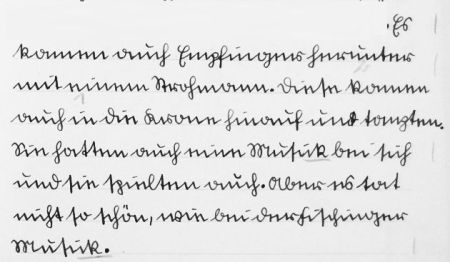 . Es
kamen auch Empfingers herunter
mit einem Strohmann. Diese kamen
auch in die Krone hinauf und tanzten.
Sie hatten auch eine Musik bei sich
und sie spielten auch. Aber es tat
nicht so schön, wie bei der Fischinger
Musik.